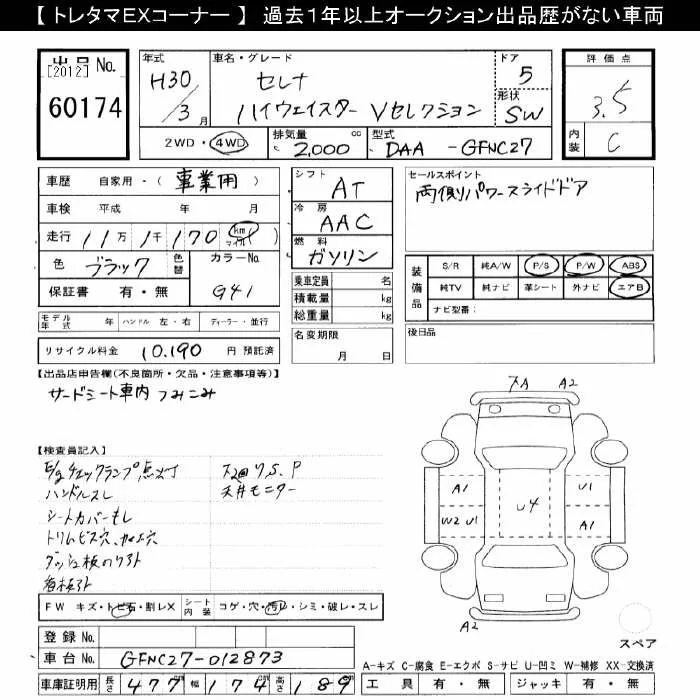 【 トレタマEXコーナー 】 過去1年以上オークション出品歴がない車両
出品 No.
[2012]
60174
年式
H30/3月
車名・グレード
セレナ
ハイウェイスター Vセレクション
ドア
5
形状
SW
2WD・4WD
排気量
2,000 cc
型式
DAA -GFNC27
評価点
3.5
内装
C
車歴 自家用・(事業用)
車検 平成 年 月
走行 11万 1千 170 km マイル
色 ブラック 色替 カラーNo.
保証書 有・無 G41
シフト
AT
冷房
AAC
燃料
ガソリン
乗車定員 名
積載量 kg
総重量 kg
名変期限
月 日
セールスポイント
両側パワースライドドア
装備品
S/R 純A/W P/S P/W ABS
純TV 純ナビ 革シート 外ナビ エアB
ナビ型番:
後日品
モデル年式 年 ハンドル 左・右 ディーラー・並行
リサイクル料金 10,190 円 預託済
【出品店申告欄(不良箇所・欠品・注意事項等)】
サードシート車内つみこみ
【検査員記入】
E/gチェックランプ点灯
ハンドルスレ
シートカバーもし
トリムビス穴、
天井モニター
FW キズ・トビ石・割レX シート内装 コゲ・穴・汚レ・シミ・破レ・スレ
登録 No.
車台 No. GFNC27-012873
車庫証明用 長さ 477 cm 幅 174 cm 高さ 189 cm
A2
A1
W2 U1
U4
U1
A1
A2
スペア
A-キズ C-腐食 E-エクボ S-サビ U-凹ミ W-補修 XX-交換済
工具 有・無 ジャッキ 有・無